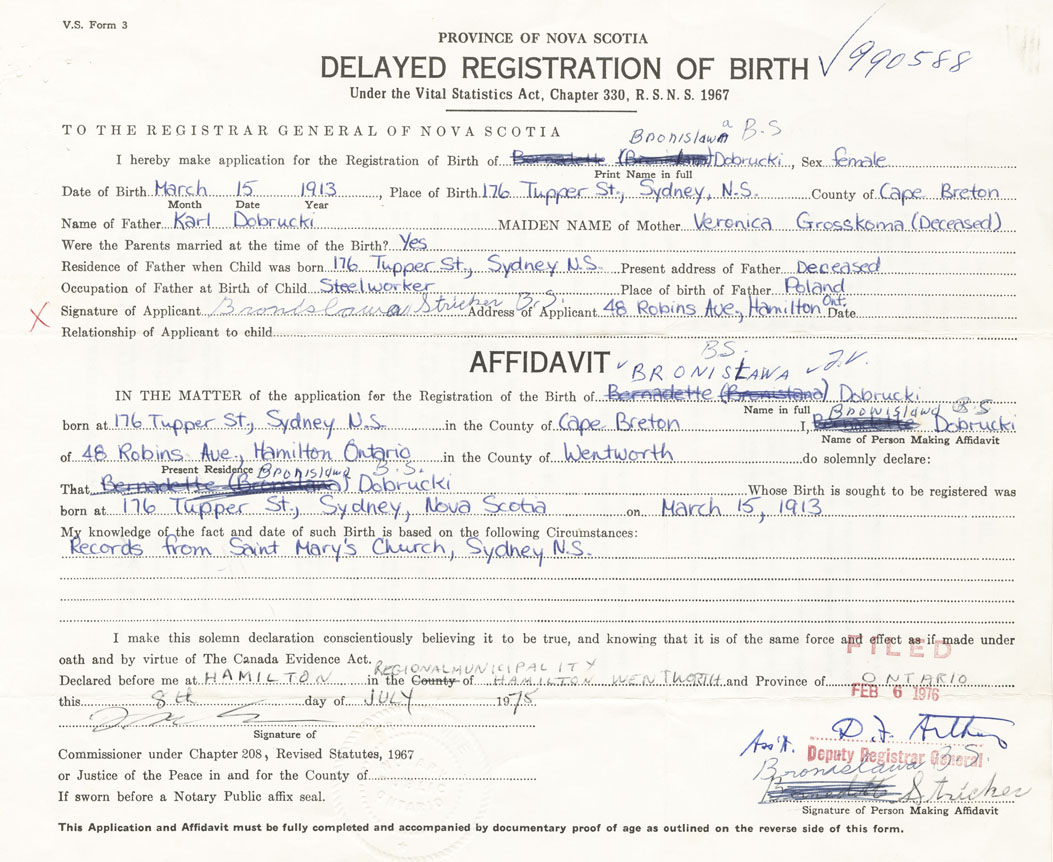 V.S. Form 3
PROVINCE OF NOVA SCOTIA
DELAYED REGISTRATION OF BIRTH ✓990588
Under the Vital Statistics Act, Chapter 330, R. S. N. S. 1967
TO THE REGISTRAR GENERAL OF NOVA SCOTIA
Bronislawa B.S
I hereby make application for the Registration of Birth of Bernadette (Bronislana) Dobrucki, Sex female
Print Name in full
Date of Birth March 15 1913, Place of Birth 176 Tupper St., Sydney, N.S. County of Cape Breton
Month Date Year
Name of Father Karl Dobrucki MAIDEN NAME of Mother Veronica Grosskoma (Deceased)
Were the Parents married at the time of the Birth? Yes
Residence of Father when Child was born 176 Tupper St., Sydney N.S. Present address of Father Deceased
Occupation of Father at Birth of Child Steelworker Place of birth of Father Poland
X Signature of Applicant Bronislawa Stricker B.S. Address of Applicant 48 Robins Ave., Hamilton Ont. Date
Relationship of Applicant to child
AFFIDAVIT
B.S.
✓ BRONISŁAWA ✓ J.V.
IN THE MATTER of the application for the Registration of the Birth of Bernadette (Bronislana) Dobrucki
Name in full Bronislawa B.S
born at 176 Tupper St., Sydney N.S. in the County of Cape Breton I, Bernadette Dobrucki
Name of Person Making Affidavit
of 48 Robins Ave., Hamilton Ontario in the County of Wentworth do solemnly declare:
Present Residence Bronislawa B.S.
That Bernadette (Bronislana) Dobrucki Whose Birth is sought to be registered was
born at 176 Tupper St., Sydney, Nova Scotia on March 15, 1913
My knowledge of the fact and date of such Birth is based on the following Circumstances:
Records from Saint Mary's Church, Sydney N.S.
I make this solemn declaration conscientiously believing it to be true, and knowing that it is of the same force and effect as if made under
FILED
oath and by virtue of The Canada Evidence Act.
REGIONAL MUNICIPALITY
Declared before me at HAMILTON in the County of HAMILTON WENTWORTH and Province of ONTARIO
FEB 6 1976
this 8th day of JULY 1975
Signature of
Ass't. D. F. Arthur
Deputy Registrar General
Commissioner under Chapter 208, Revised Statutes, 1967
or Justice of the Peace in and for the County of
Bronislawa B.S.
Bernadette Stricker
If sworn before a Notary Public affix seal.
Signature of Person Making Affidavit
This Application and Affidavit must be fully completed and accompanied by documentary proof of age as outlined on the reverse side of this form.